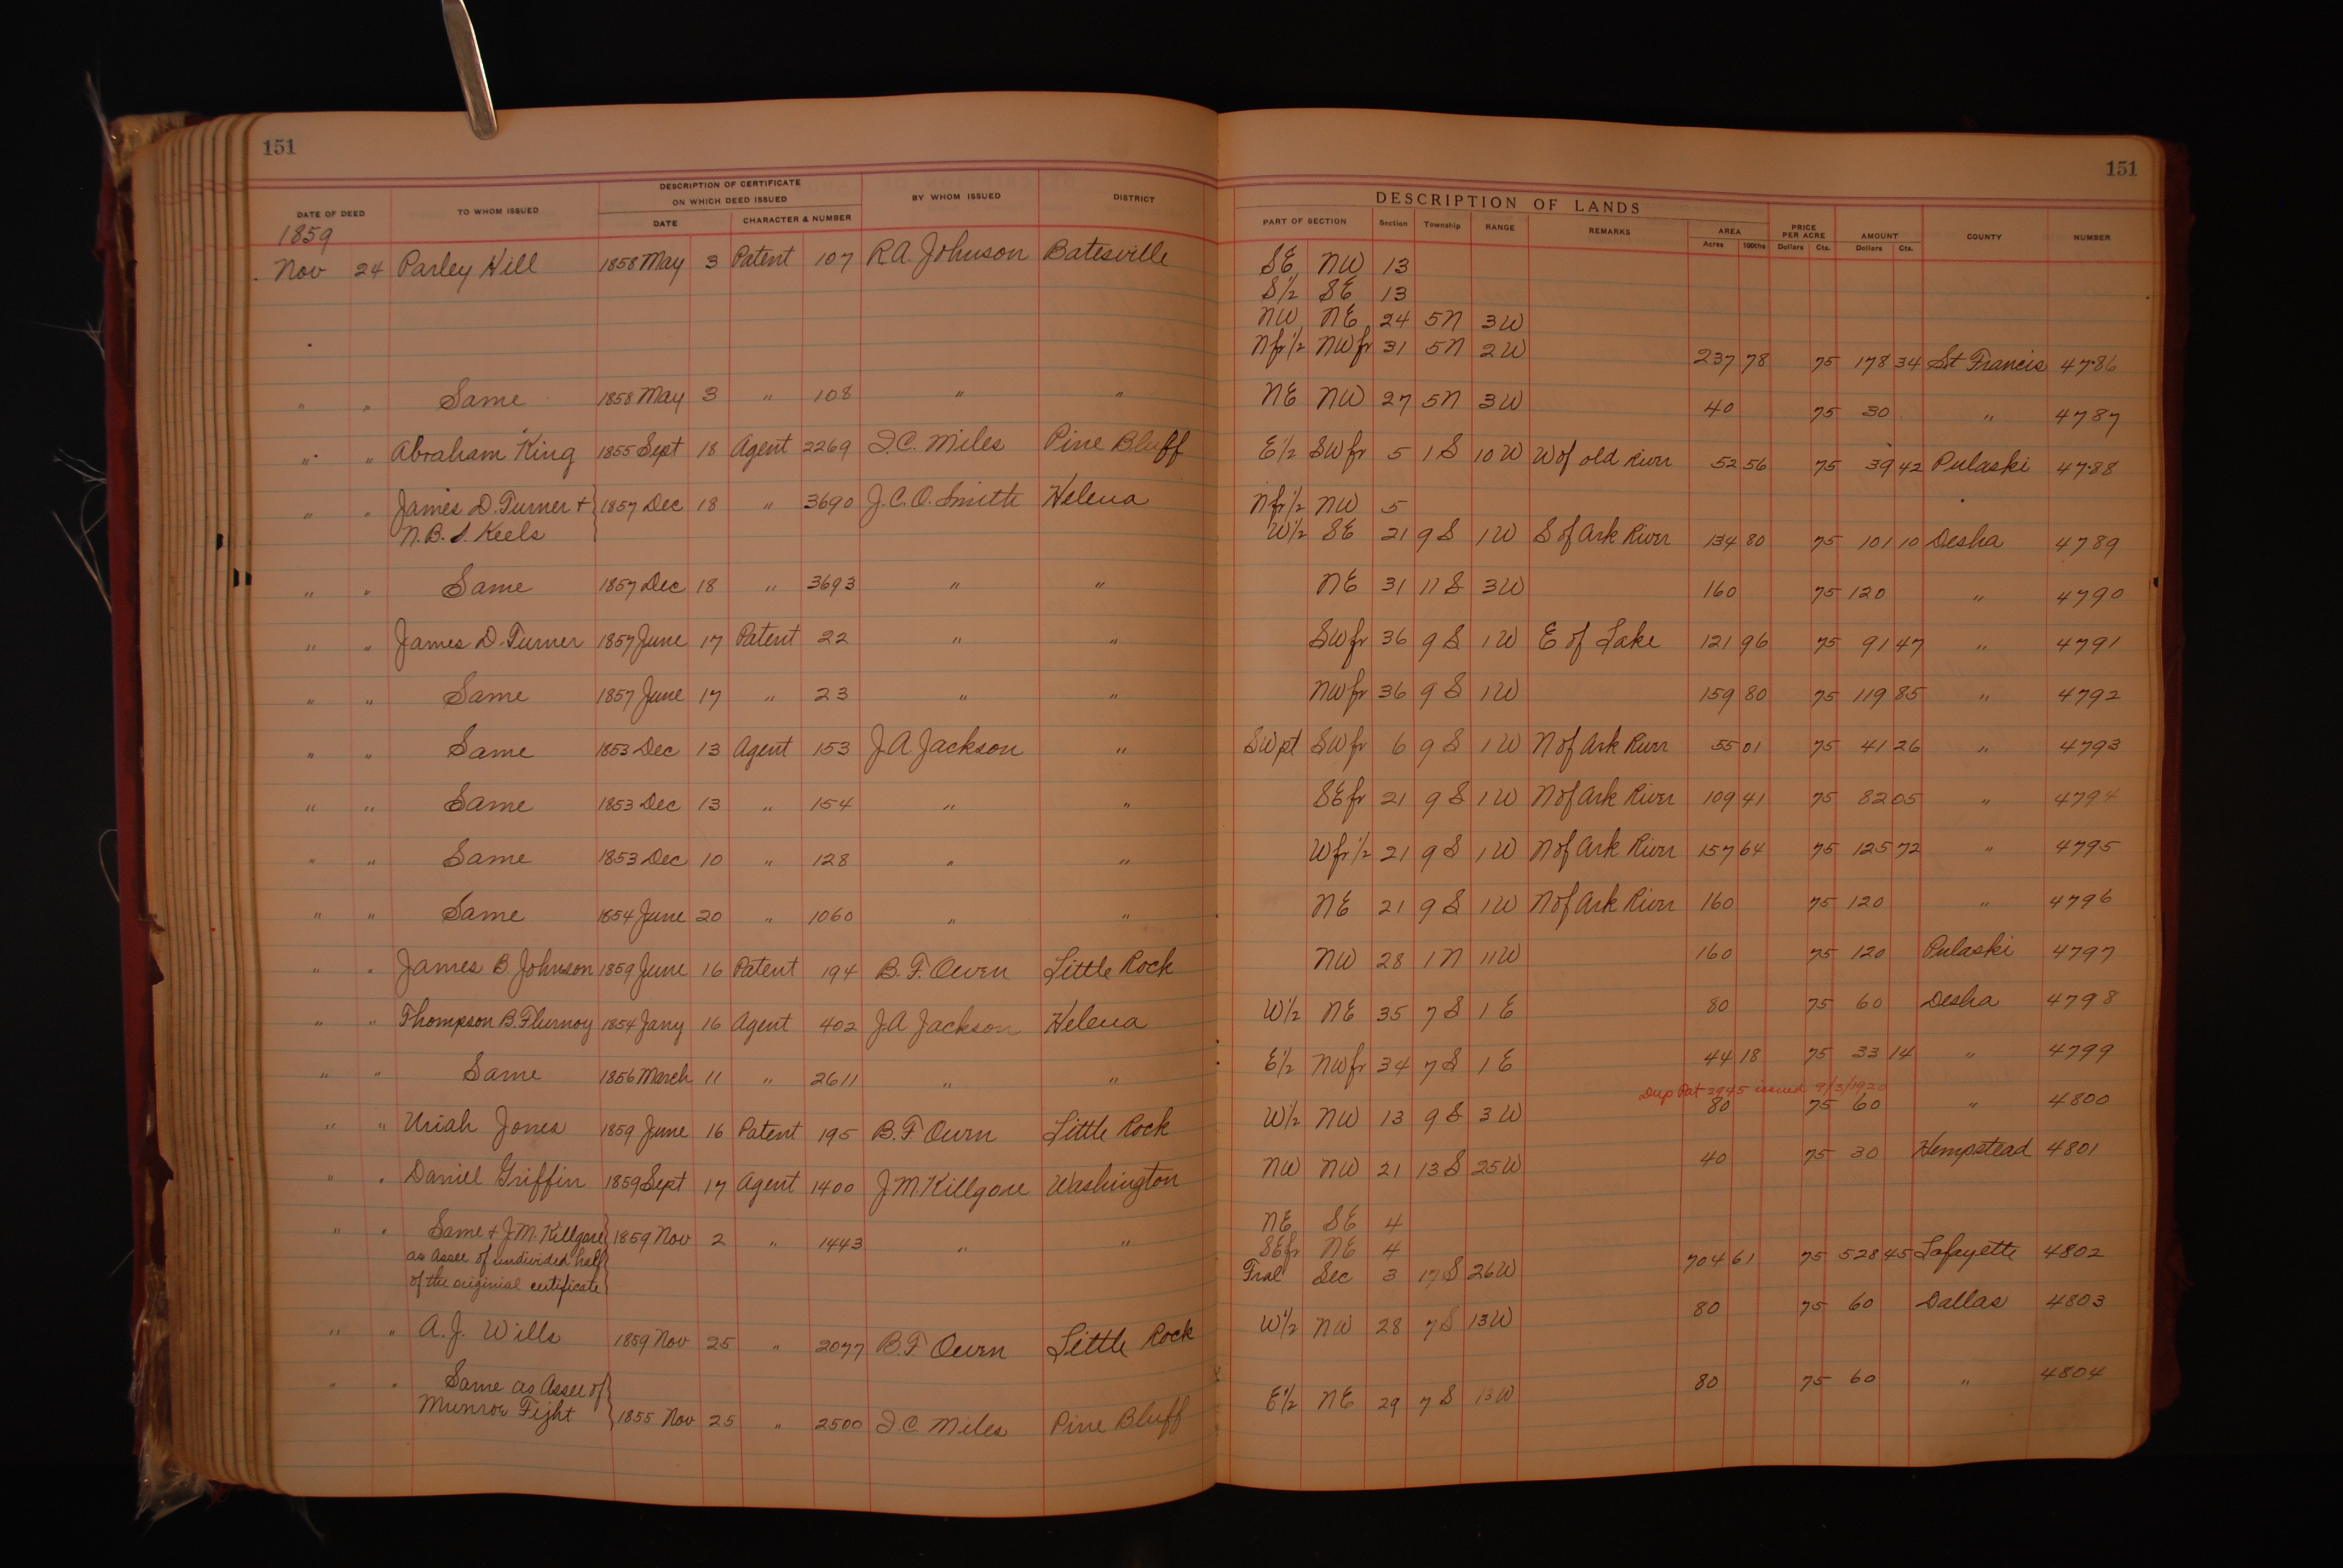 151
151
DATE OF DEED TO WHOM ISSUED DESCRIPTION OF CERTIFICATE ON WHICH DEED ISSUED BY WHOM ISSUED DISTRICT
DATE CHARACTER & NUMBER
DESCRIPTION OF LANDS
PART OF SECTION Section Township RANGE REMARKS AREA PRICE PER ACRE AMOUNT COUNTY NUMBER
Acres 100ths Dollars Cts. Dollars Cts.
1859
Nov 24 Parley Hill 1858 May 3 Patent 107 R.A. Johnson Batesville SE NW 13
S½ SE 13
NW NE 24 5N 3W
Nfr½ NWfr 31 5N 2W 237 78 75 178 34 St Francis 4786
" " Same 1858 May 3 " 108 " " NE NW 27 5N 3W 40 75 30 " 4787
" " Abraham King 1855 Sept 18 Agent 2269 I.C. Miles Pine Bluff E½ SWfr 5 1S 10W W of old River 52 56 75 39 42 Pulaski 4788
" " James D. Turner + 1857 Dec 18 " 3690 J.C.O. Smith Helena Nfr½ NW 5
N.B.S. Keels W½ SE 21 9S 1W S of Ark River 134 80 75 101 10 Desha 4789
" " Same 1857 Dec 18 " 3693 " " NE 31 11S 3W 160 75 120 " 4790
" " James D. Turner 1857 June 17 Patent 22 " " SWfr 36 9S 1W E of Lake 121 96 75 91 47 " 4791
" " Same 1857 June 17 " 23 " " NWfr 36 9S 1W 159 80 75 119 85 " 4792
" " Same 1853 Dec 13 Agent 153 J.A. Jackson " SWpt SWfr 6 9S 1W N of Ark River 55 01 75 41 26 " 4793
" " Same 1853 Dec 13 " 154 " " SEfr 21 9S 1W N of Ark River 109 41 75 82 05 " 4794
" " Same 1853 Dec 10 " 128 " " Wfr½ 21 9S 1W N of Ark River 157 64 75 125 72 " 4795
" " Same 1854 June 20 " 1060 " " NE 21 9S 1W N of Ark River 160 75 120 " 4796
" " James B Johnson 1859 June 16 Patent 194 B.F. Owen Little Rock NW 28 1N 11W 160 75 120 Pulaski 4797
" " Thompson B. Flurnoy 1854 Jany 16 Agent 402 J.A Jackson Helena W½ NE 35 7S 1E 80 75 60 Desha 4798
" " Same 1856 March 11 " 2611 " " E½ NWfr 34 7S 1E 44 18 75 33 14 " 4799
Dup Pat 3945 issued 9/3/1920
" " Uriah Jones 1859 June 16 Patent 195 B.F Owen Little Rock W½ NW 13 9S 3W 80 75 60 " 4800
" " Daniel Griffin 1859 Sept 17 Agent 1400 J.M. Killgore Washington NW NW 21 13S 25W 40 75 30 Hempstead 4801
" " Same + J.M. Killgore 1859 Nov 2 " 1443 " " NE SE 4
as Assee of undivided half SEfr NE 4
of the originial certificate Fral Sec 3 17S 26W 704 61 75 528 45 Lafayette 4802
" " A.J. Wills 1859 Nov 25 " 2077 B.F. Owen Little Rock W½ NW 28 7S 13W 80 75 60 Dallas 4803
" " Same as Assee of
Munroe Fight 1855 Nov 25 " 2500 I.C. Miles Pine Bluff E½ NE 29 7S 13W 80 75 60 " 4804